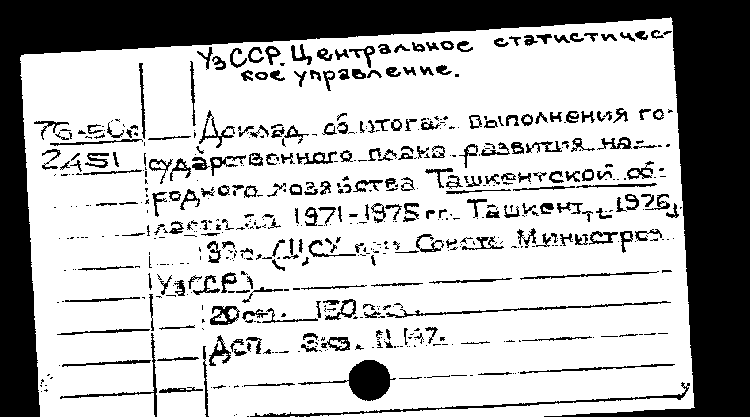 УзССР. Центральное статистичес-
кое управление.
76-50с Доклад об итогах выполнения го-
2451 сударственного плана развития на-
родного хозяйства Ташкентской об-
ласти за 1971-1975 гг. Ташкент, 1976.
(ЦСУ при Совете Министров
УзССР).
20 см. 150 экз.
Дсп. Экз. N 147.